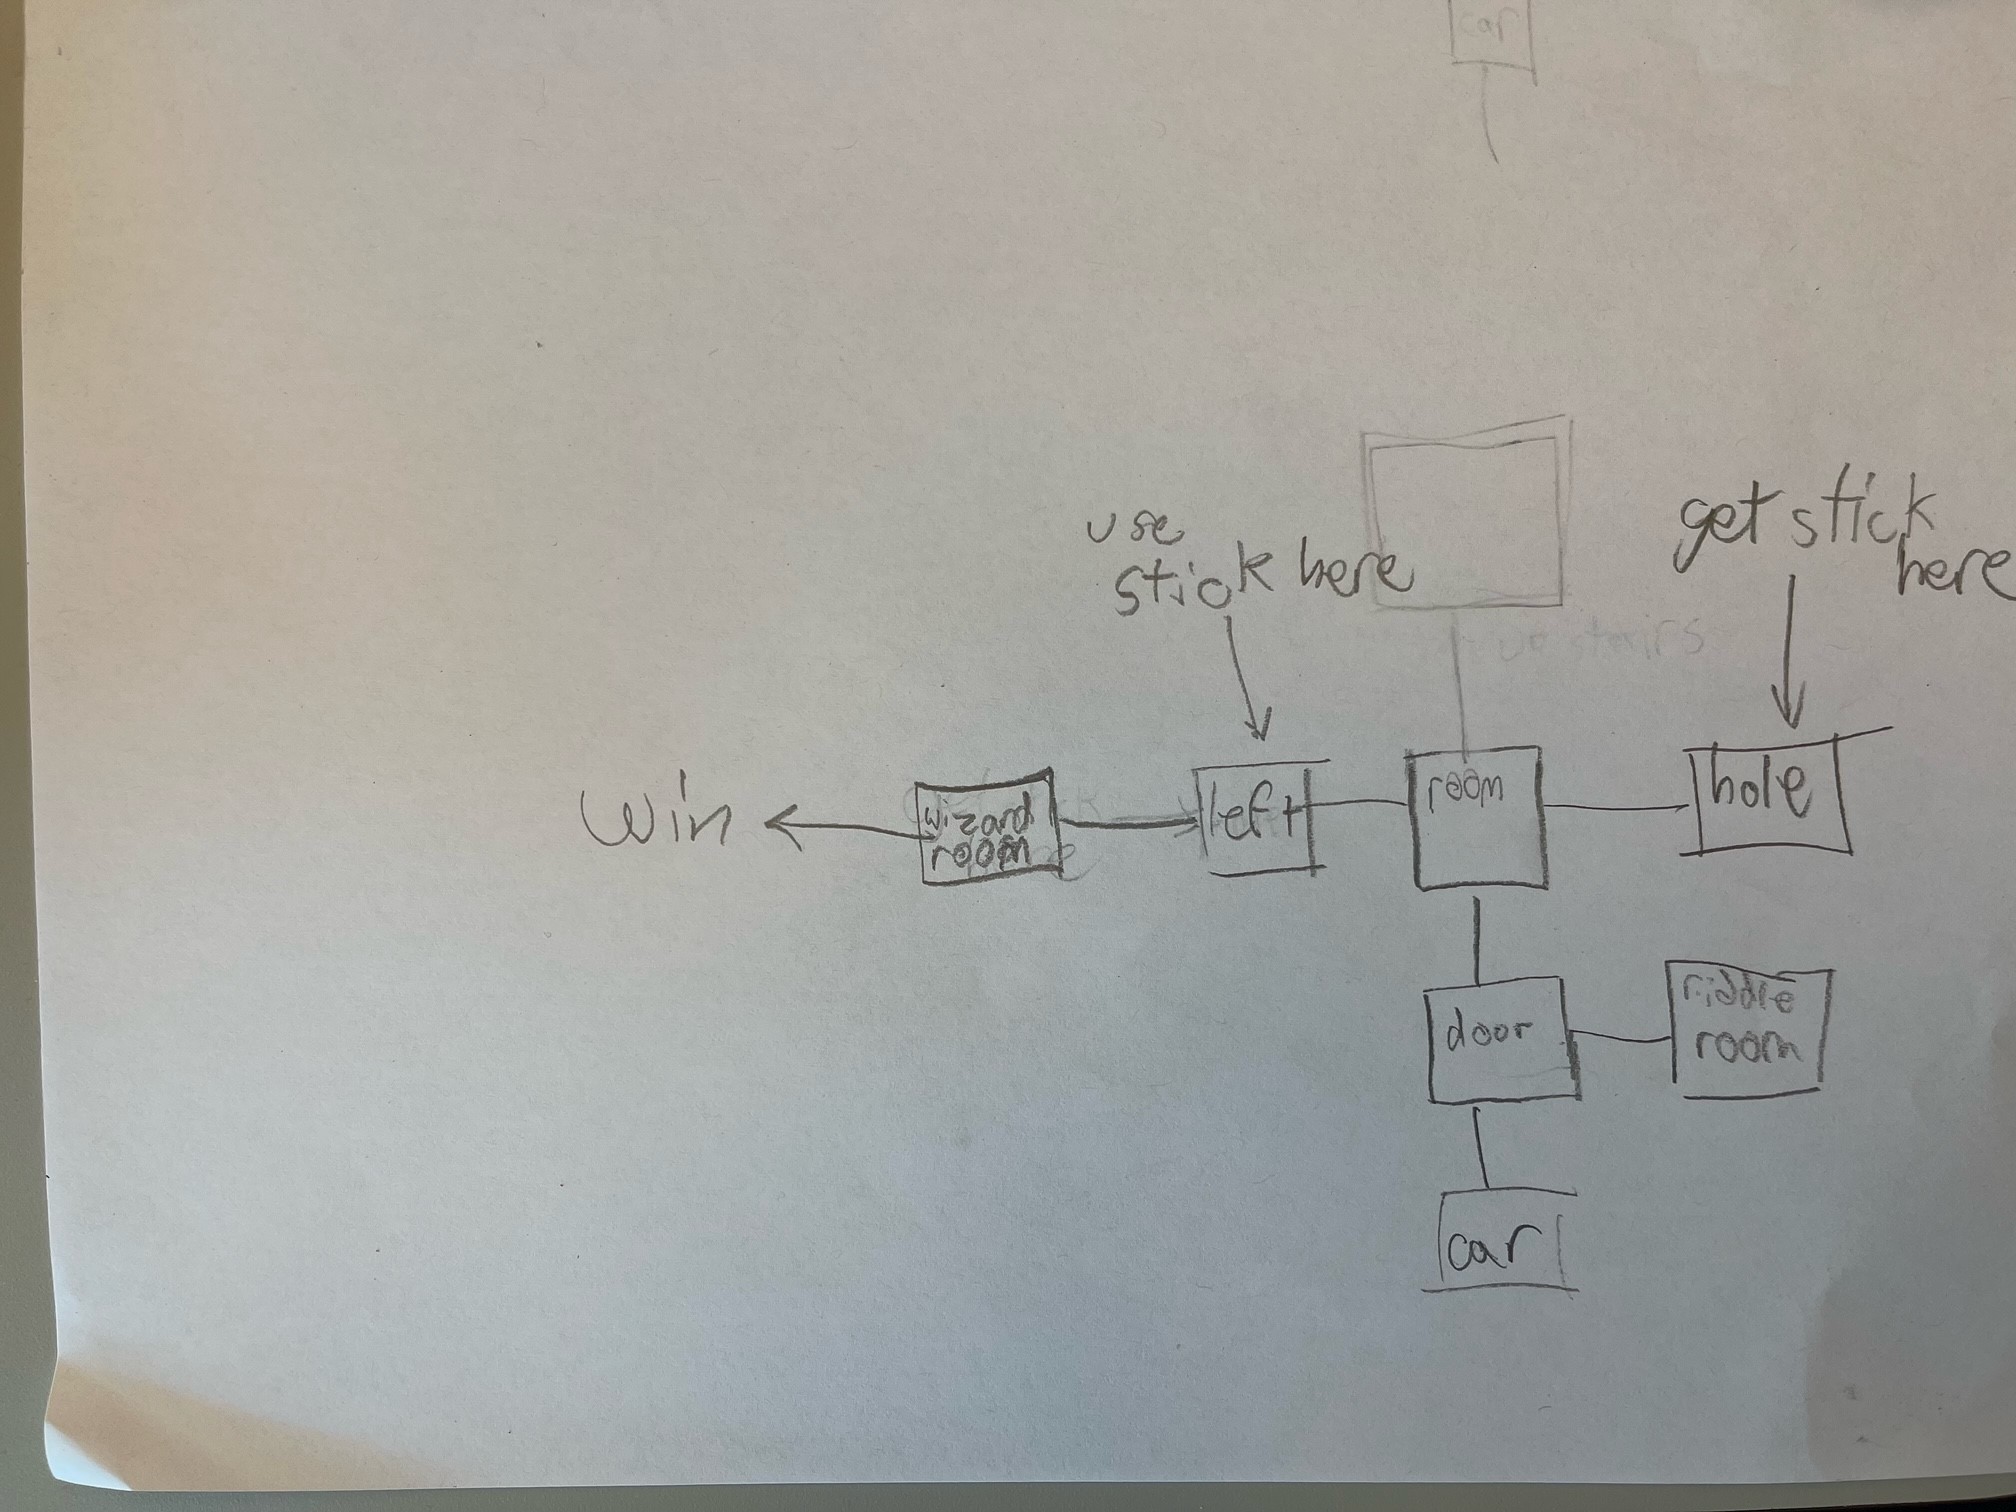 car
use
stick here
get stick
here
up stairs
win
wizard
room
left
room
hole
door
riddle
room
car